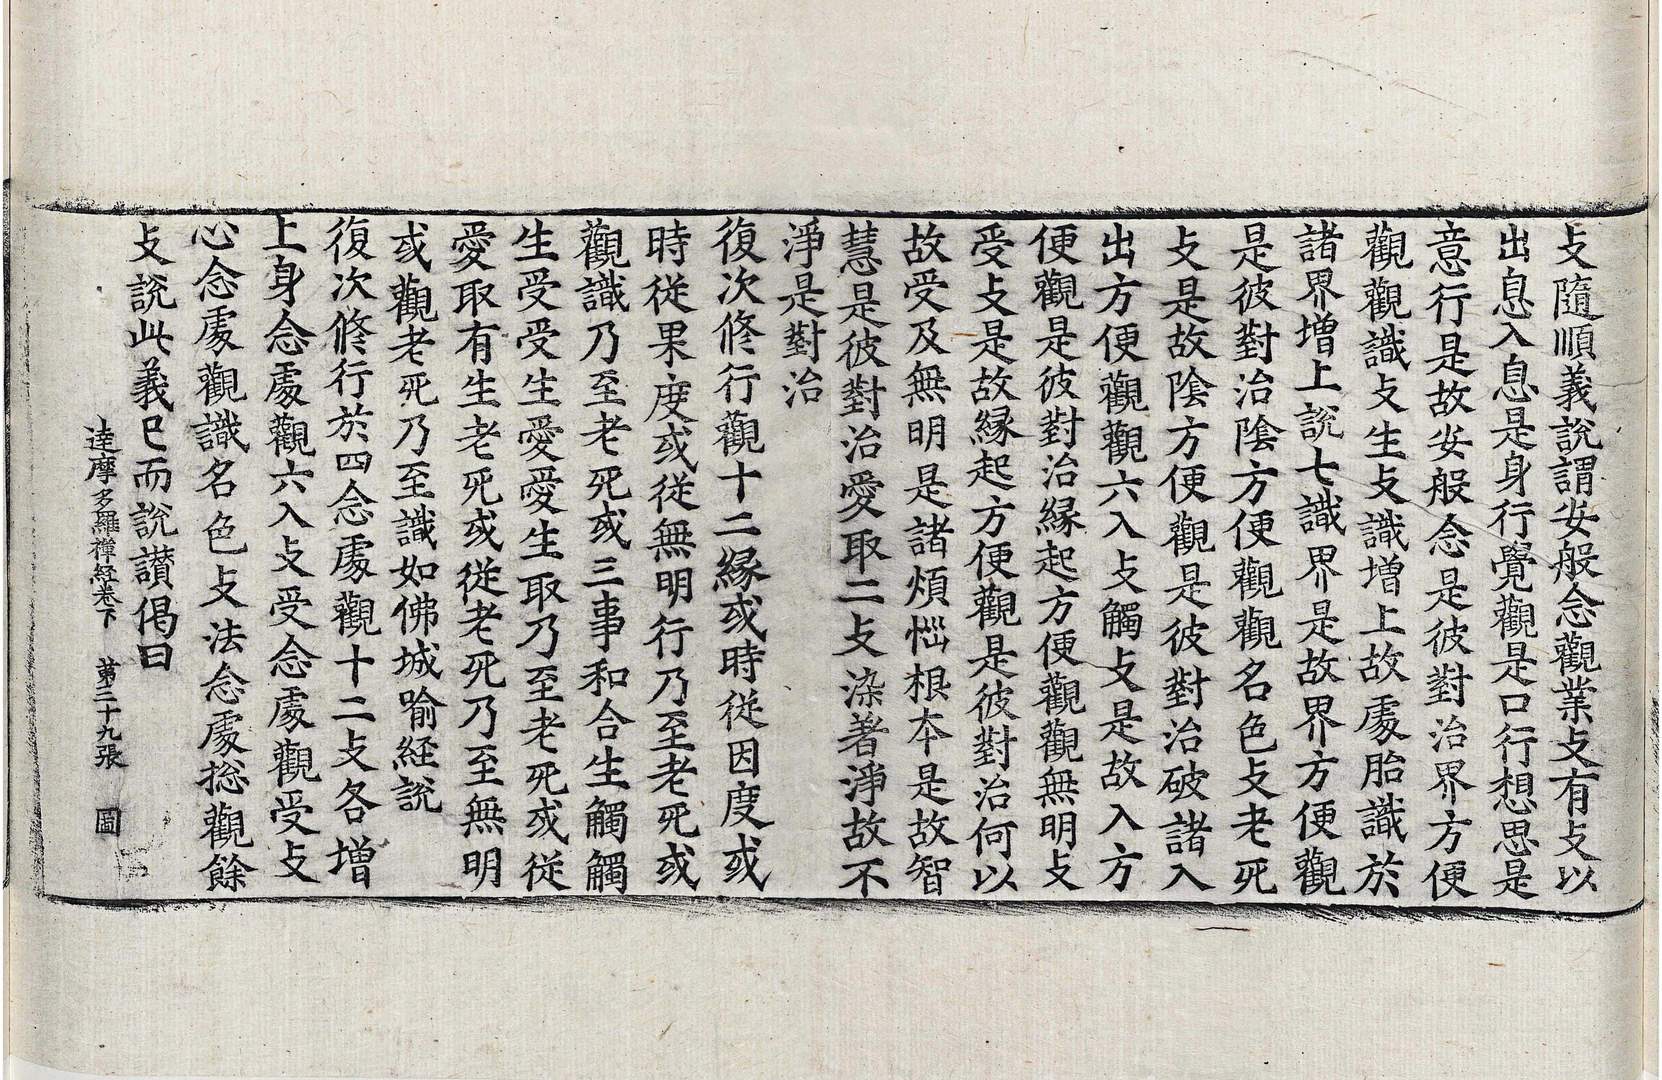 支隨順義說謂安般念觀業支有支以
出息入息是身行覺觀是口行想思是
意行是故安般念是彼對治界方便
觀觀識支生支識增上故處胎識於
諸界增上說七識界是故界方便觀
是彼對治陰方便觀觀名色支老死
支是故陰方便觀是彼對治破諸入
出方便觀觀六入支觸支是故入方
便觀是彼對治縁起方便觀觀無明支
受支是故縁起方便觀是彼對治何以
故受及無明是諸煩惱根本是故智
慧是彼對治愛取二支染著淨故不
淨是對治
復次修行觀十二縁或時從因度或
時從果度或從無明行乃至老死或
觀識乃至老死或三事和合生觸觸
生受受生愛愛生取乃至老死或從
愛取有生老死或從老死乃至無明
或觀老死乃至識如佛城喻經說
復次修行於四念處觀十二支各增
上身念處觀六入支受念處觀受支
心念處觀識名色支法念處捴觀餘
支說此義已而說讃偈曰
達摩多羅禪經卷下 第三十九張 圖